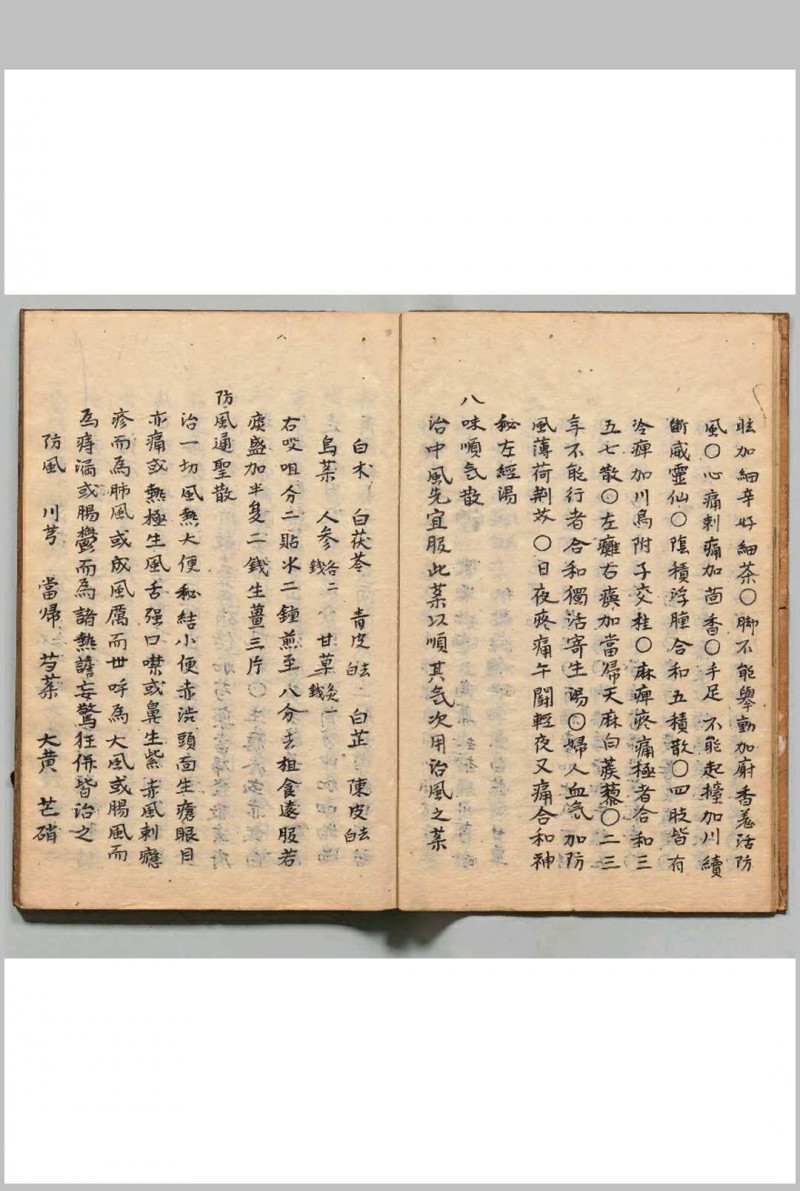 眩加細辛好細茶〇脚不能舉動加麝香羗活防
風〇心痛刺痛加茴香〇手足不能起撞加川續
斷威靈仙〇陰積浮腫合和五積散〇四肢皆有
冷痺加川烏附子交桂〇麻痺疼痛極者合和三
五七散〇左癱右瘓加當帰天麻白蒺藜〇二三
年不能行者合和獨活寄生湯〇婦人血気加防
風薄荷荆芥〇日夜疼痛午間輕夜又痛合和神
秘左經湯
八味順気散
治中風先宜服此薬以順其気次用治風之薬
白术 白茯苓 青皮去白 白芷 陳皮去白
烏薬 人参各二錢 甘草灸一錢
右㕮咀分二貼水二鐘煎至八分去柤食遠服若
痰盛加半夏二錢生薑三片〇
防風通聖散
治一切風熱大便秘結小便赤渋頭面生瘡眼目
亦痛或熱極生風舌强口噤或鼻生紫赤風刺癮
疹而為肺風或成風厲而世呼為大風或腸風而
為痔漏或腸鬱而為諸熱譫妄驚狂併皆治之
防風 川芎 當帰 芍薬 大黄 芒硝